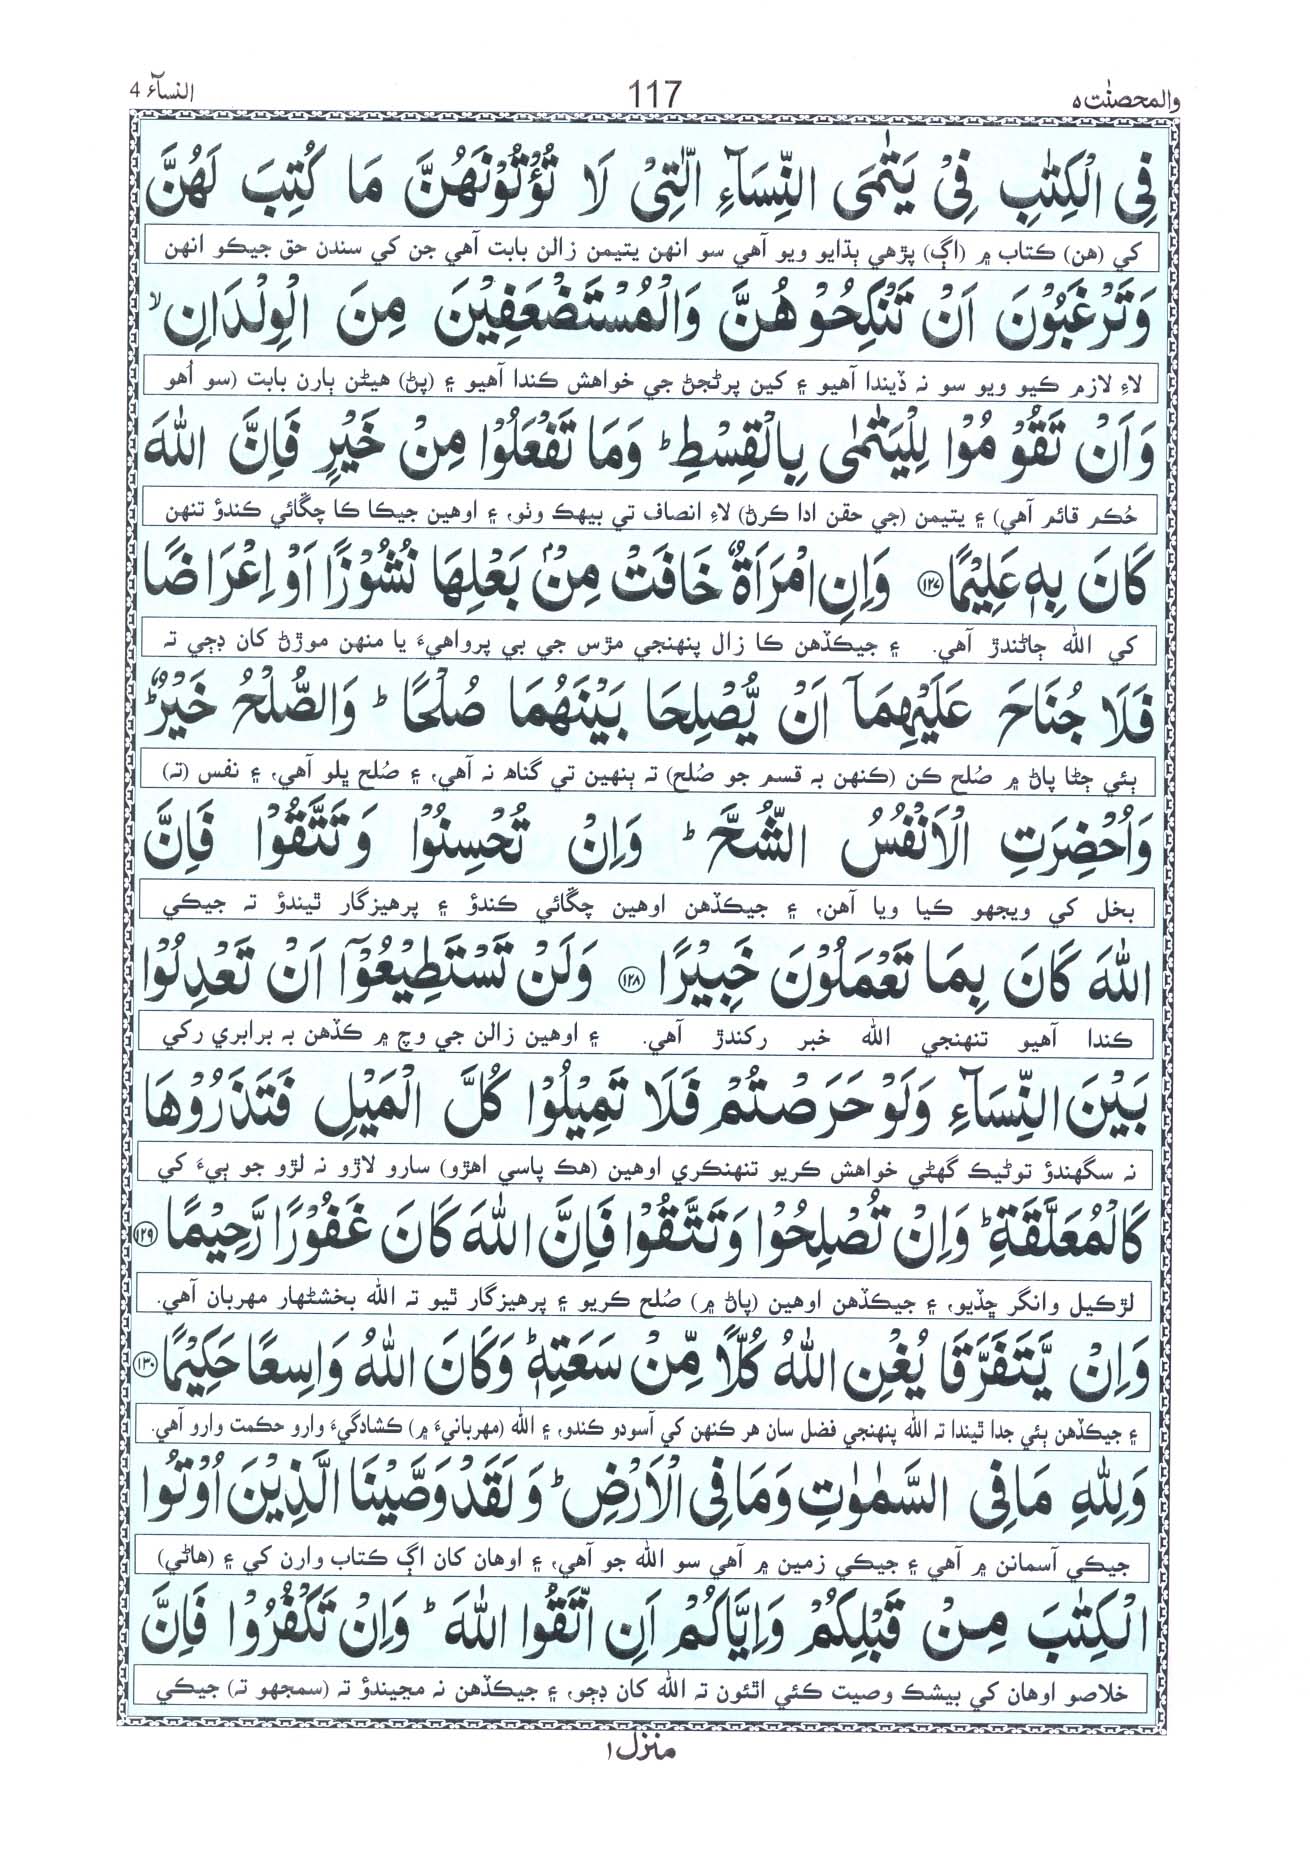 والمحصنٰت ٥ 117 النسآء 4
فِی الْکِتٰبِ فِیْ یَتٰمَی النِّسَآءِ الّٰتِیْ لَا تُؤْتُوْنَهُنَّ مَا کُتِبَ لَهُنَّ
کي (هن) ڪتاب ۾ (اڳ) پڙهي ٻڌايو ويو آهي سو انهن يتيمن زالن بابت آهي جن کي سندن حق جيڪو انهن
وَتَرْغَبُوْنَ اَنْ تَنْکِحُوْهُنَّ وَالْمُسْتَضْعَفِیْنَ مِنَ الْوِلْدَانِ ۙ
لاءِ لازم ڪيو ويو سو نہ ڏيندا آهيو ۽ کين پرڻجڻ جي خواهش ڪندا آهيو ۽ (پڻ) هيڻن ٻارن بابت (سو اُهو
وَاَنْ تَقُوْمُوْا لِلْیَتٰمٰی بِالْقِسْطِ ؕ وَمَا تَفْعَلُوْا مِنْ خَیْرٍ فَاِنَّ اللهَ
حُڪم قائم آهي) ۽ يتيمن (جي حقن ادا ڪرڻ) لاءِ انصاف تي بيهڪ وٺو، ۽ اوهين جيڪا ڪا چڱائي ڪندؤ تنهن
کَانَ بِهٖ عَلِیْمًا ﴿۱۲۷﴾ وَاِنِ امْرَاَةٌ خَافَتْ مِنْۢ بَعْلِهَا نُشُوْزًا اَوْ اِعْرَاضًا
کي الله ڄاڻندڙ آهي. ۽ جيڪڏهن ڪا زال پنهنجي مڙس جي بي پرواهيءَ يا منهن موڙڻ کان ڊڄي تہ
فَلَا جُنَاحَ عَلَیْهِمَاۤ اَنْ یُّصْلِحَا بَیْنَهُمَا صُلْحًا ؕ وَالصُّلْحُ خَیْرٌ ؕ
ٻئي ڄڻا پاڻ ۾ صُلح ڪن (ڪنهن بہ قسم جو صُلح) تہ ٻنهين تي گناھ نہ آهي، ۽ صُلح ڀلو آهي، ۽ نفس (تہ)
وَاُحْضِرَتِ الْاَنْفُسُ الشُّحَّ ؕ وَاِنْ تُحْسِنُوْا وَتَتَّقُوْا فَاِنَّ
بخل کي ويجهو ڪيا ويا آهن، ۽ جيڪڏهن اوهين چڱائي ڪندؤ ۽ پرهيزگار ٿيندؤ تہ جيڪي
اللهَ کَانَ بِمَا تَعْمَلُوْنَ خَبِیْرًا ﴿۱۲۸﴾ وَلَنْ تَسْتَطِیْعُوْۤا اَنْ تَعْدِلُوْا
ڪندا آهيو تنهنجي الله خبر رکندڙ آهي. ۽ اوهين زالن جي وچ ۾ ڪڏهن بہ برابري رکي
بَیْنَ النِّسَآءِ وَلَوْ حَرَصْتُمْ فَلَا تَمِیْلُوْا کُلَّ الْمَیْلِ فَتَذَرُوْهَا
نہ سگهندؤ توڻيڪ گهڻي خواهش ڪريو تنهنڪري اوهين (هڪ پاسي اهڙو) سارو لاڙو نہ لڙو جو ٻيءَ کي
کَالْمُعَلَّقَةِ ؕ وَاِنْ تُصْلِحُوْا وَتَتَّقُوْا فَاِنَّ اللهَ کَانَ غَفُوْرًا رَّحِیْمًا ﴿۱۲۹﴾
لڙڪيل وانگر ڇڏيو، ۽ جيڪڏهن اوهين (پاڻ ۾) صُلح ڪريو ۽ پرهيزگار ٿيو تہ الله بخشڻهار مهربان آهي.
وَاِنْ یَّتَفَرَّقَا یُغْنِ اللهُ کُلًّا مِّنْ سَعَتِهٖ ؕ وَکَانَ اللهُ وَاسِعًا حَکِیْمًا ﴿۱۳۰﴾
۽ جيڪڏهن ٻئي جدا ٿيندا تہ الله پنهنجي فضل سان هر ڪنهن کي آسودو ڪندو، ۽ الله (مهربانيءَ ۾) ڪشادگيءَ وارو حڪمت وارو آهي.
وَلِلّٰهِ مَا فِی السَّمٰوٰتِ وَمَا فِی الْاَرْضِ ؕ وَلَقَدْ وَصَّیْنَا الَّذِیْنَ اُوْتُوا
جيڪي آسمانن ۾ آهي ۽ جيڪي زمين ۾ آهي سو الله جو آهي، ۽ اوهان کان اڳ ڪتاب وارن کي ۽ (هاڻي)
الْکِتٰبَ مِنْ قَبْلِکُمْ وَاِیَّاکُمْ اَنِ اتَّقُوا اللهَ ؕ وَاِنْ تَکْفُرُوْا فَاِنَّ
خلاصو اوهان کي بيشڪ وصيت ڪئي اٿئون تہ الله کان ڊڄو، ۽ جيڪڏهن نہ مڃيندؤ تہ (سمجهو تہ) جيڪي
منزل ١